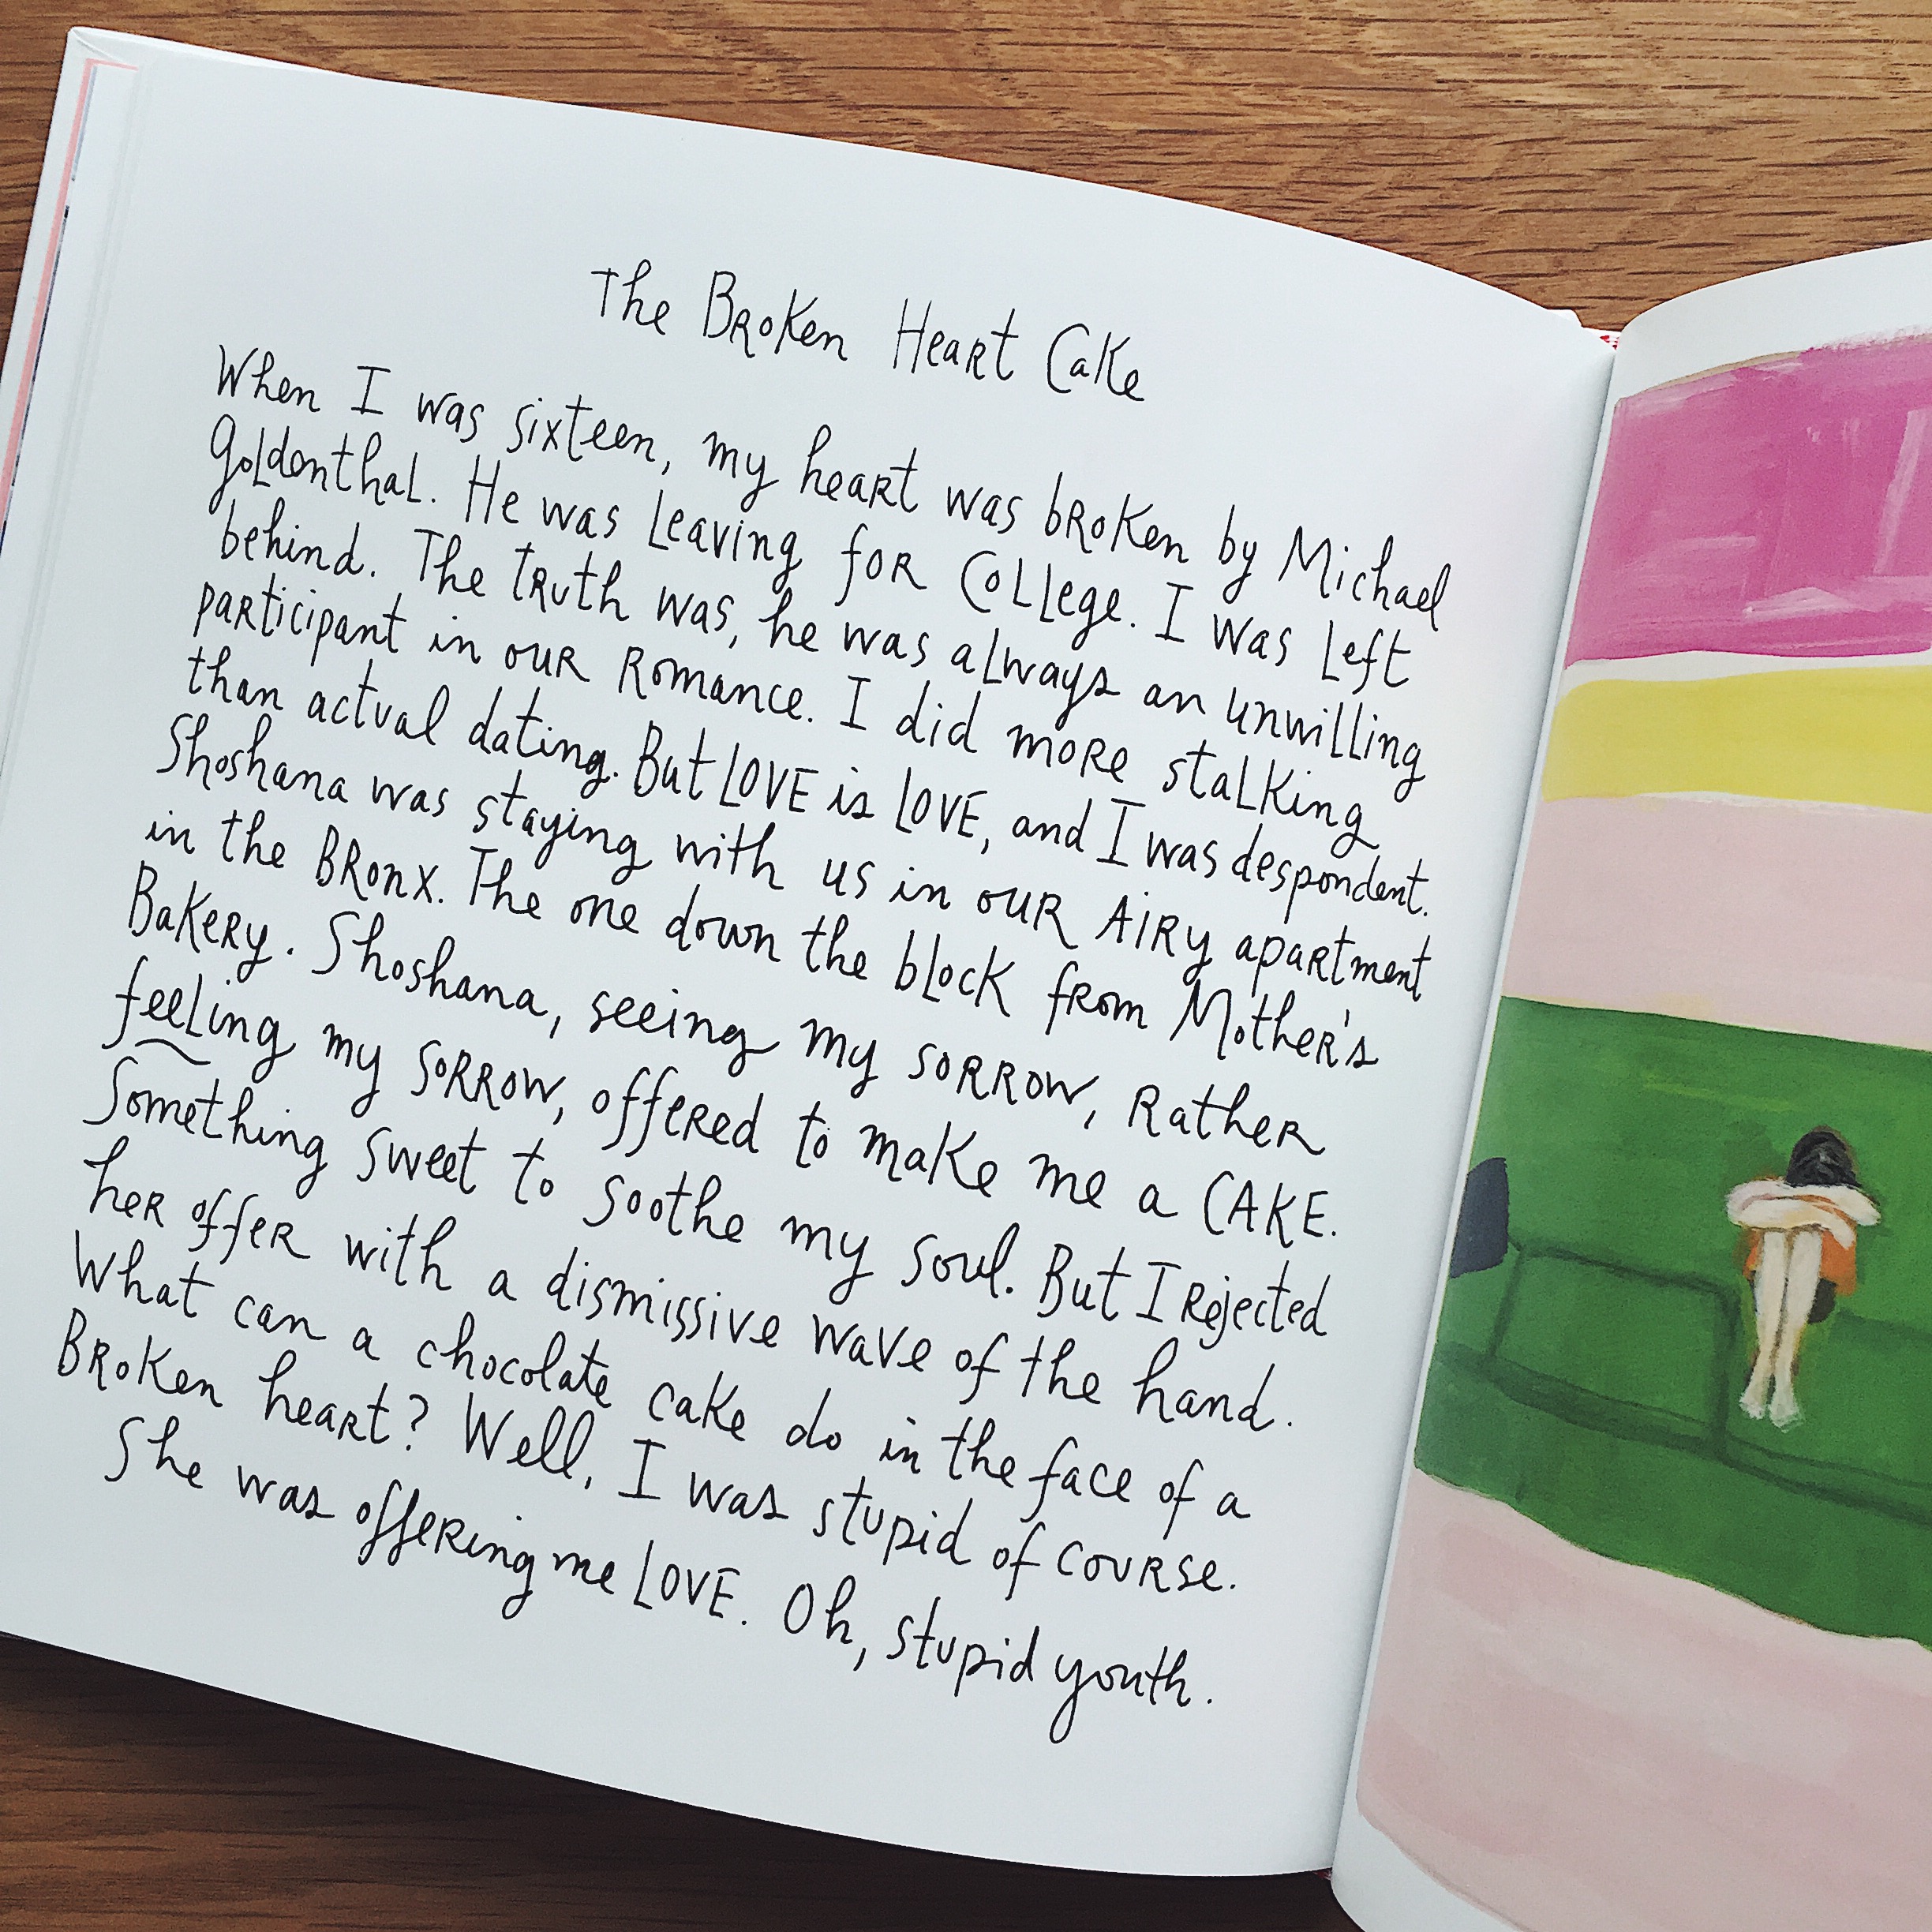 The Broken Heart Cake
When I was sixteen, my heart was broken by Michael
Goldonthal. He was leaving for College. I was left
behind. The truth was, he was always an unwilling
participant in our romance. I did more stalking
than actual dating. But LOVE is LOVE, and I was despondent.
Shoshana was staying with us in our airy apartment
in the Bronx. The one down the block from Mother's
Bakery. Shoshana, seeing my sorrow, rather
feeling my sorrow, offered to make me a CAKE.
Something sweet to soothe my soul. But I rejected
her offer with a dismissive wave of the hand.
What can a chocolate cake do in the face of a
Broken heart? Well, I was stupid of course.
She was offering me LOVE. Oh, stupid youth.